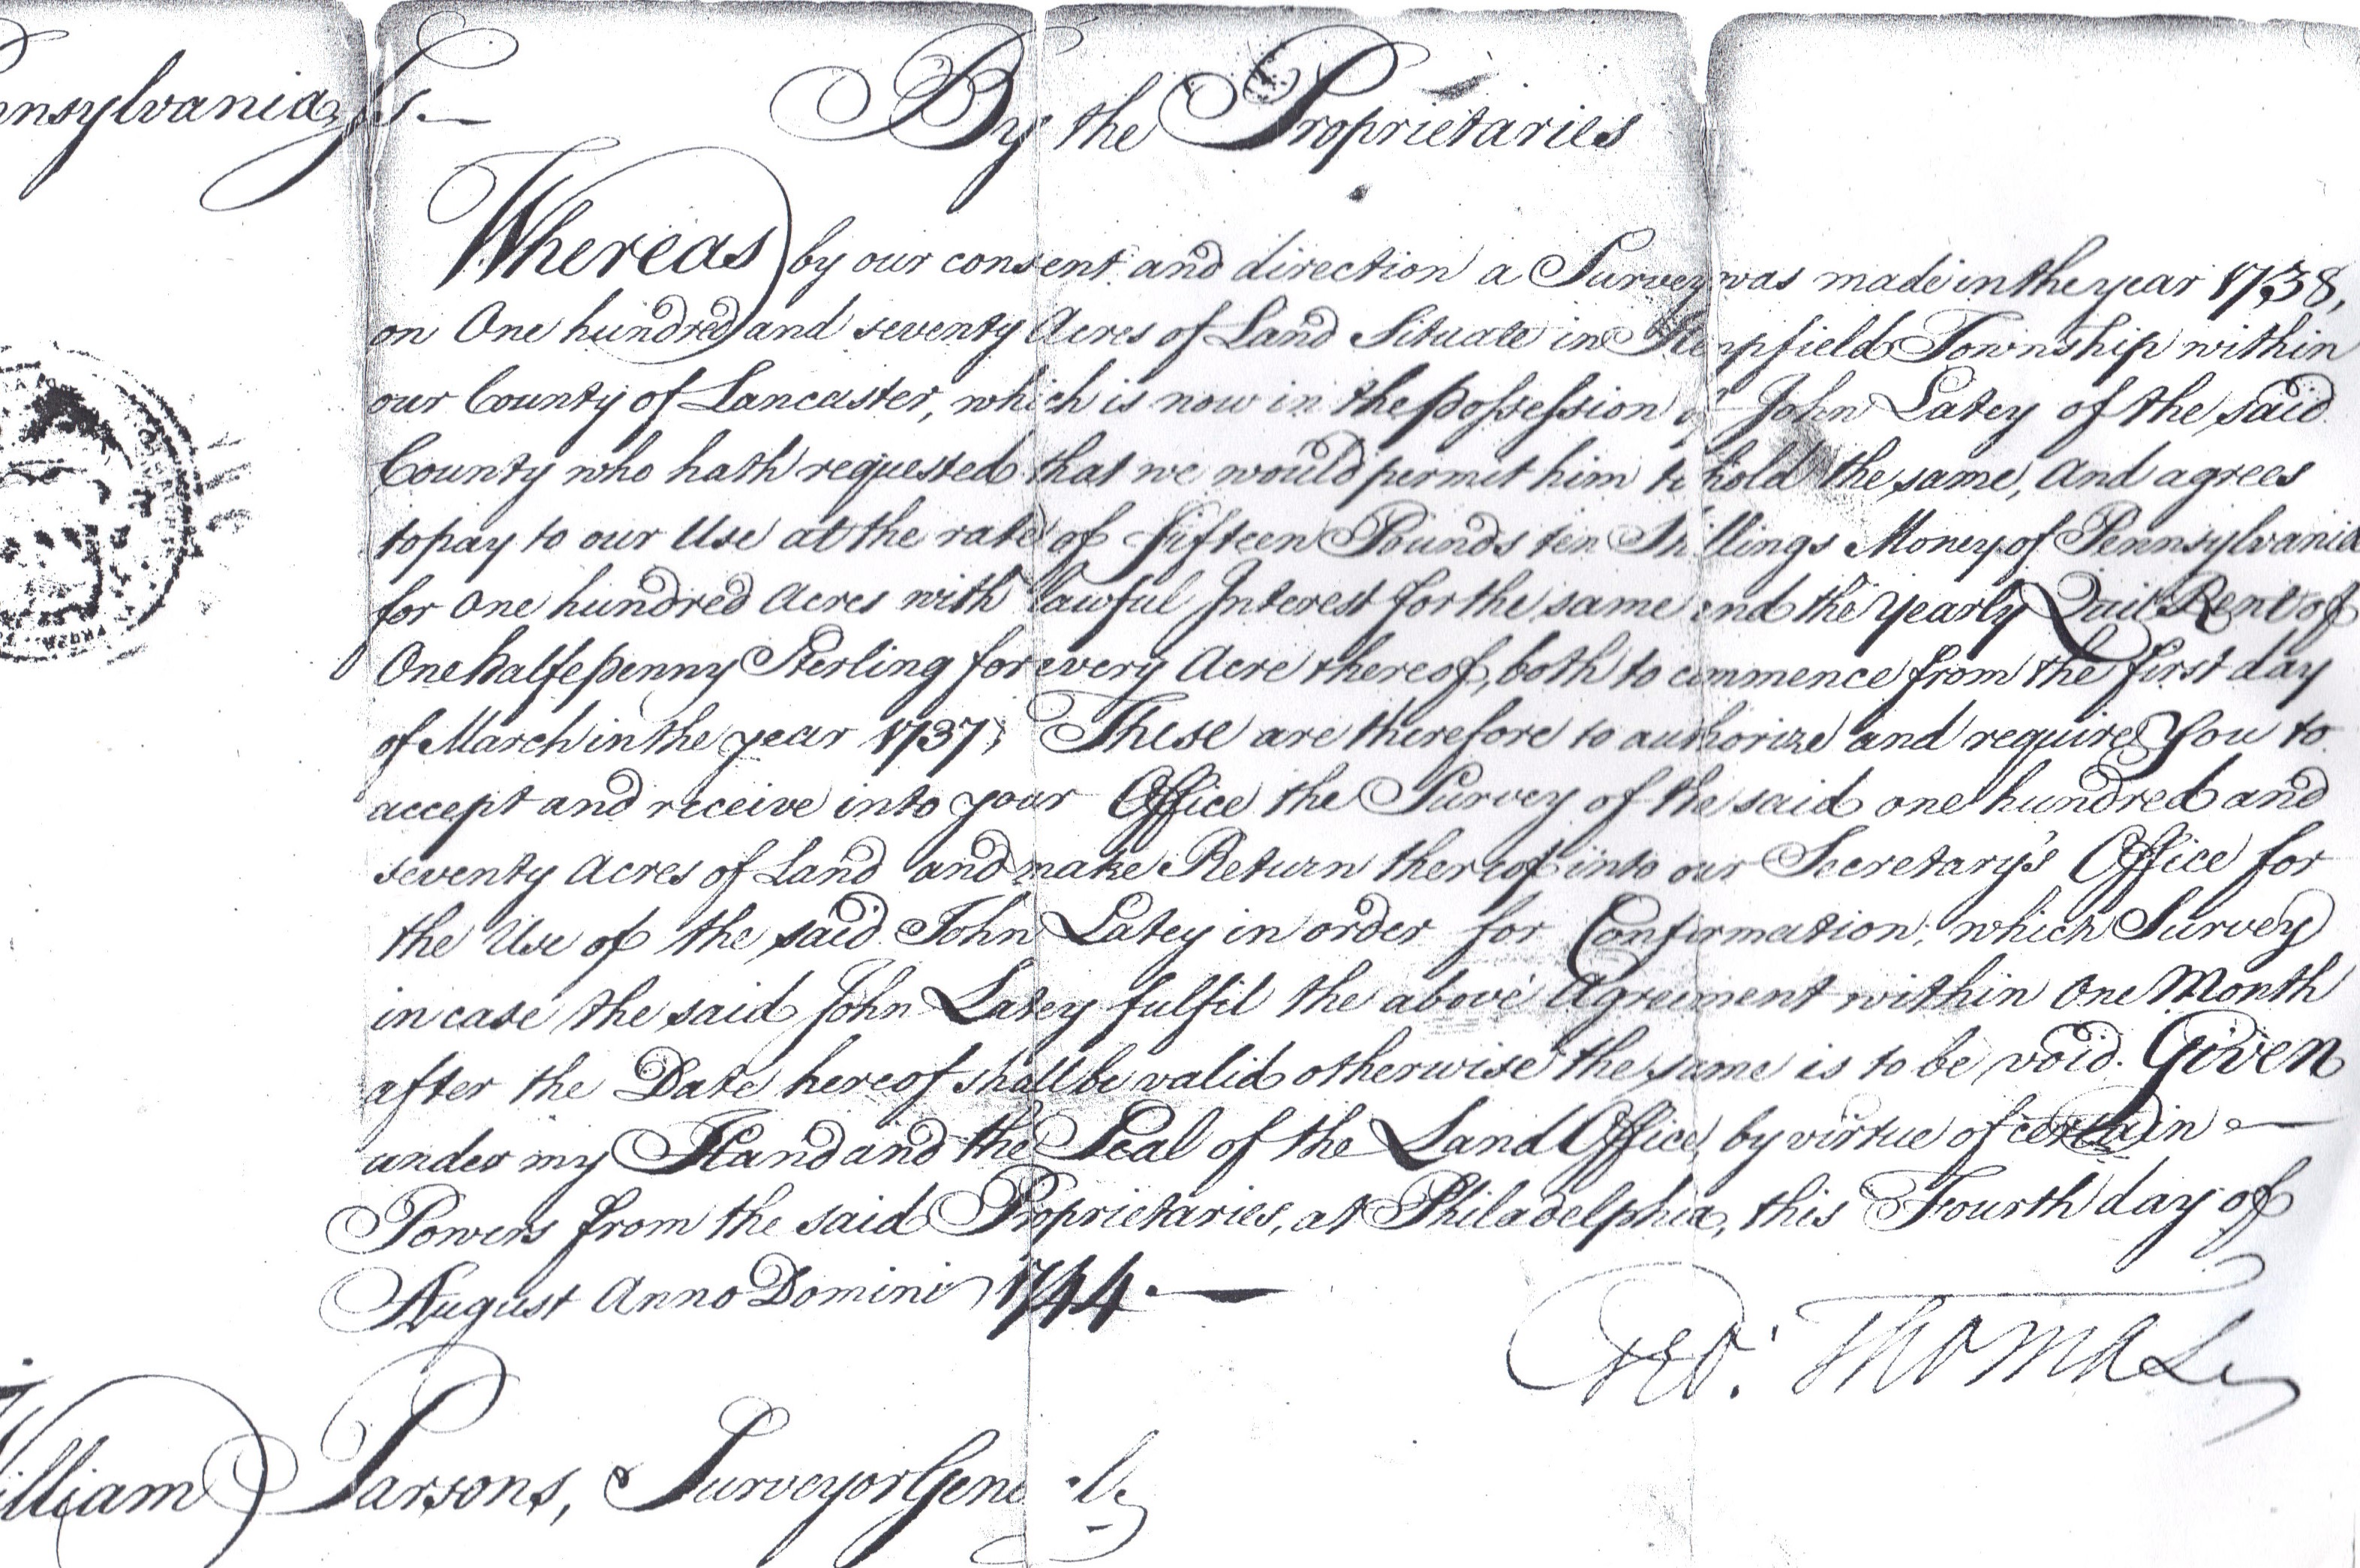 nnsylvania, ss.
By the Proprietaries
Whereas by our consent and direction a Survey was made in the year 1738,
on One hundred and seventy Acres of Land Situate in Hempfield Township within
our County of Lancaster, which is now in the possession of John Latey of the said
County who hath requested that we would permit him to hold the same, and agrees
to pay to our Use at the rate of fifteen Pounds ten Shillings Money of Pennsylvania
for One hundred Acres with lawful Interest for the same and the Yearly Quit Rent of
One halfepenny Sterling for every Acre thereof, both to commence from the first day
of March in the year 1737; These are therefore to authorize and require You to
accept and receive into your Office the Survey of the said one hundred and
seventy Acres of Land and make Return thereof into our Secretary's Office for
the Use of the said John Latey in order for Confirmation; which Survey
in case the said John Latey fulfil the above Agreement within One Month
after the Date hereof shall be valid otherwise the same is to be void. Given
under my Hand and the Seal of the Land Office, by virtue of certain
Powers from the said Proprietaries, at Philadelphia, this Fourth day of
August Anno Domini 1744.
Geo: Thomas
illiam Parsons, Surveyor Gen